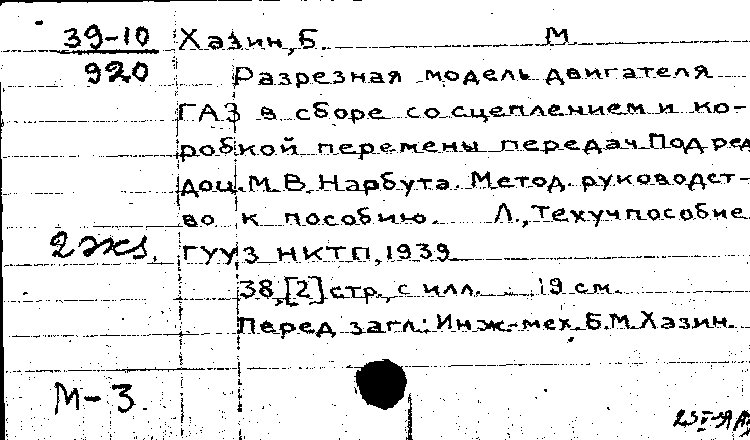 39-10 Хазин, Б. М
920 Разрезная модель двигателя
ГАЗ в сборе со сцеплением и ко-
робкой перемены передач. Под ред.
доц. М. В. Нарбута. Метод. руководст-
во к пособию. Л., Техучпособие
2 экз. ГУУЗ НКТП, 1939
38, [2] стр., с илл. 19 см.
Перед загл.: Инж.-мех. Б. М. Хазин.
М-3.